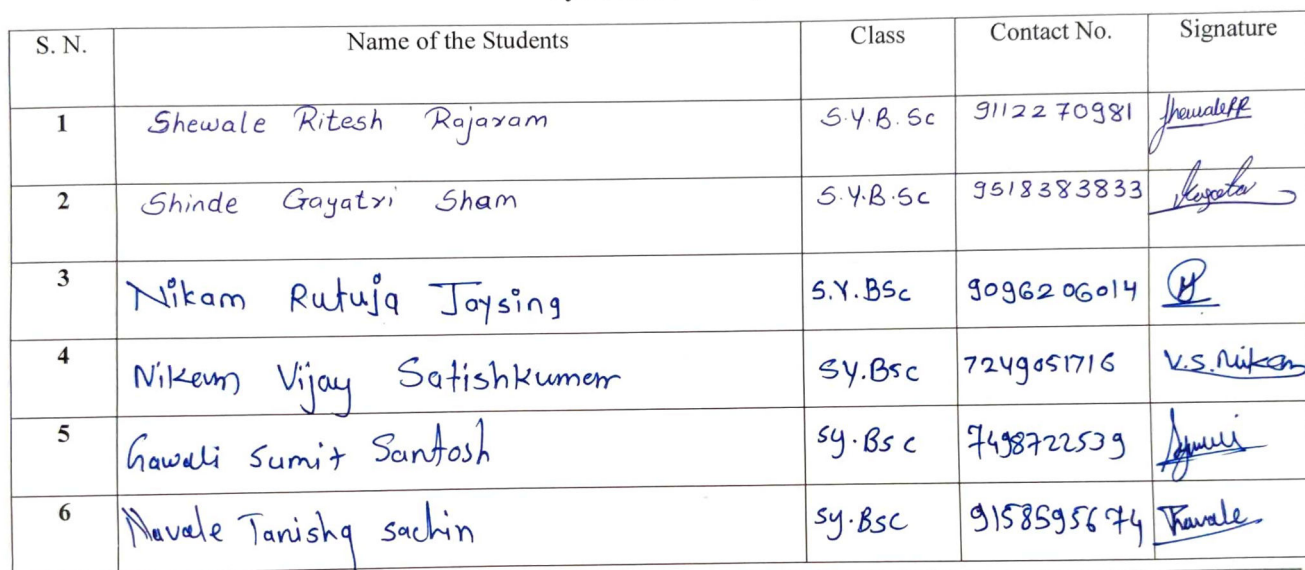 S. N. Name of the Students Class Contact No. Signature
1 Shewale Ritesh Rajaram S.Y.B.Sc 9112270981 ShewaleRR
2 Shinde Gayatri Sham S.Y.B.Sc 9518383833
3 Nikam Rutuja Jaysing S.Y.BSc 9096206014
4 Nikam Vijay Satishkumar SY.BSc 7249051716 V.S.Nikam
5 Gawali Sumit Santosh SY.BSc 7498722539
6 Navale Tanishq sachin SY.BSC 9158595674 TNavale